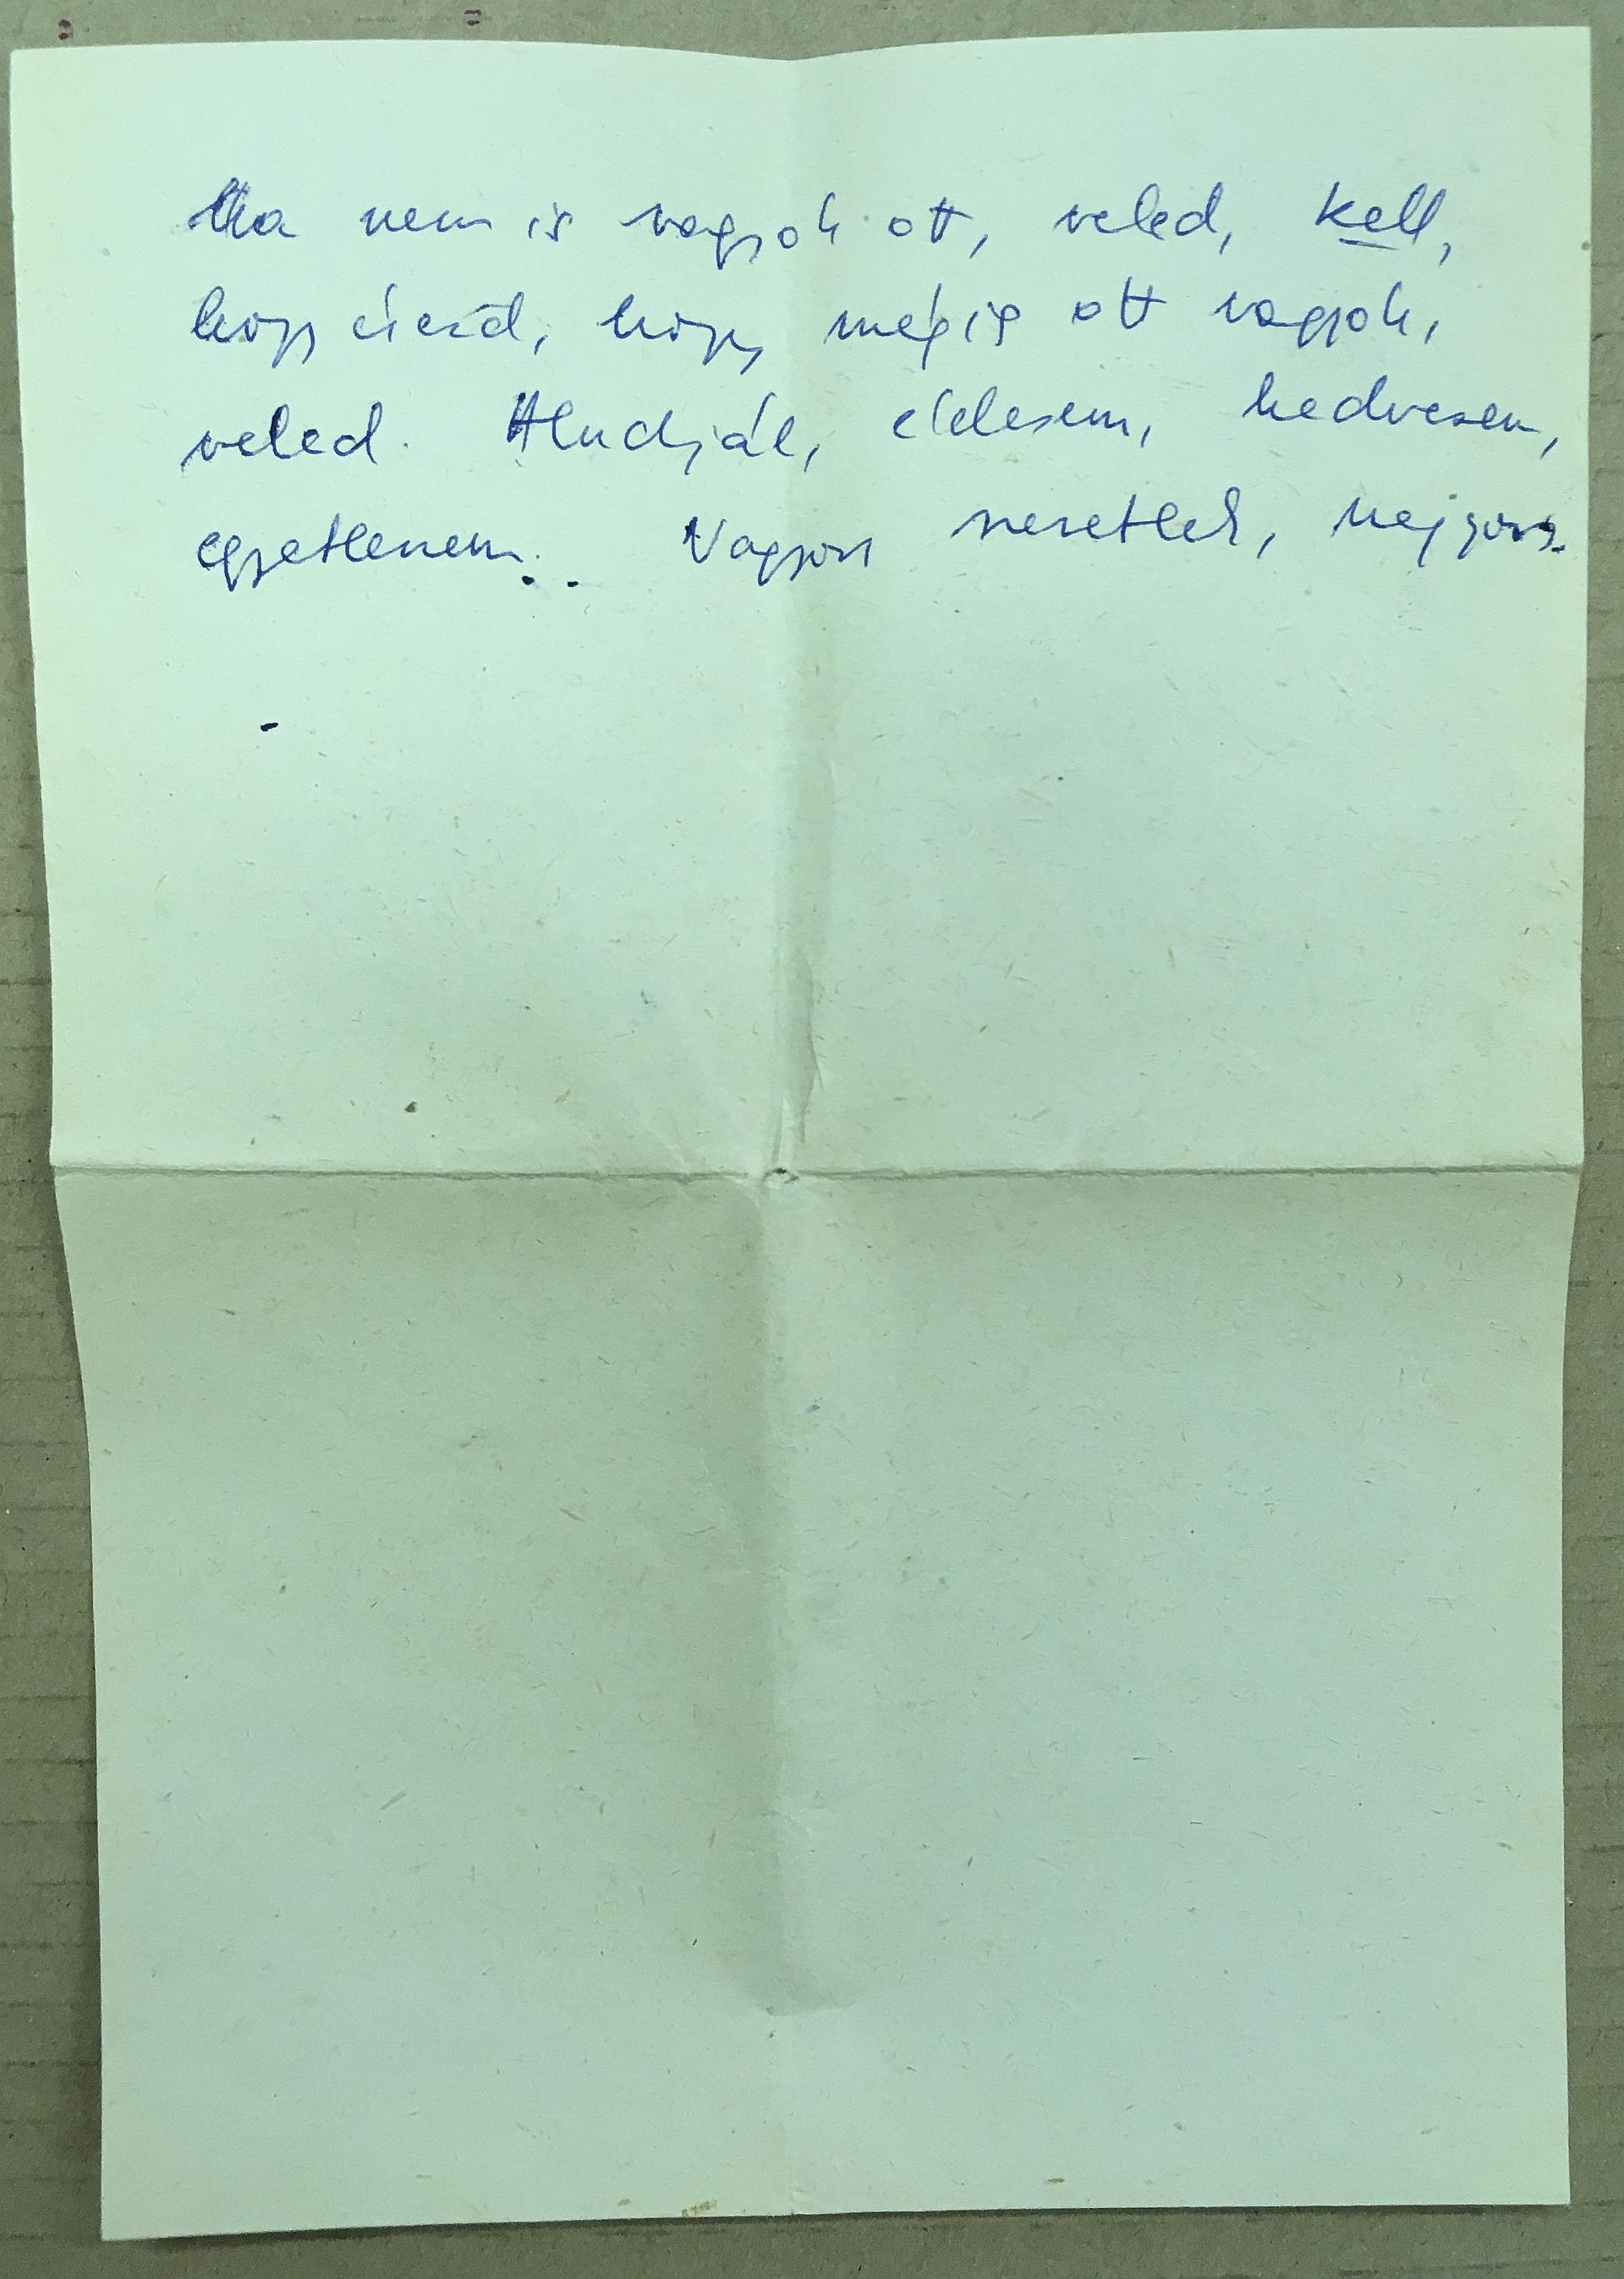 Ha nem is vagyok ott, veled, kell,
hogy érezd, hogy mégis ott vagyok,
veled. Aludjál, édesem, kedvesem,
egyetlenem.. Nagyon szeretlek, nagyon.